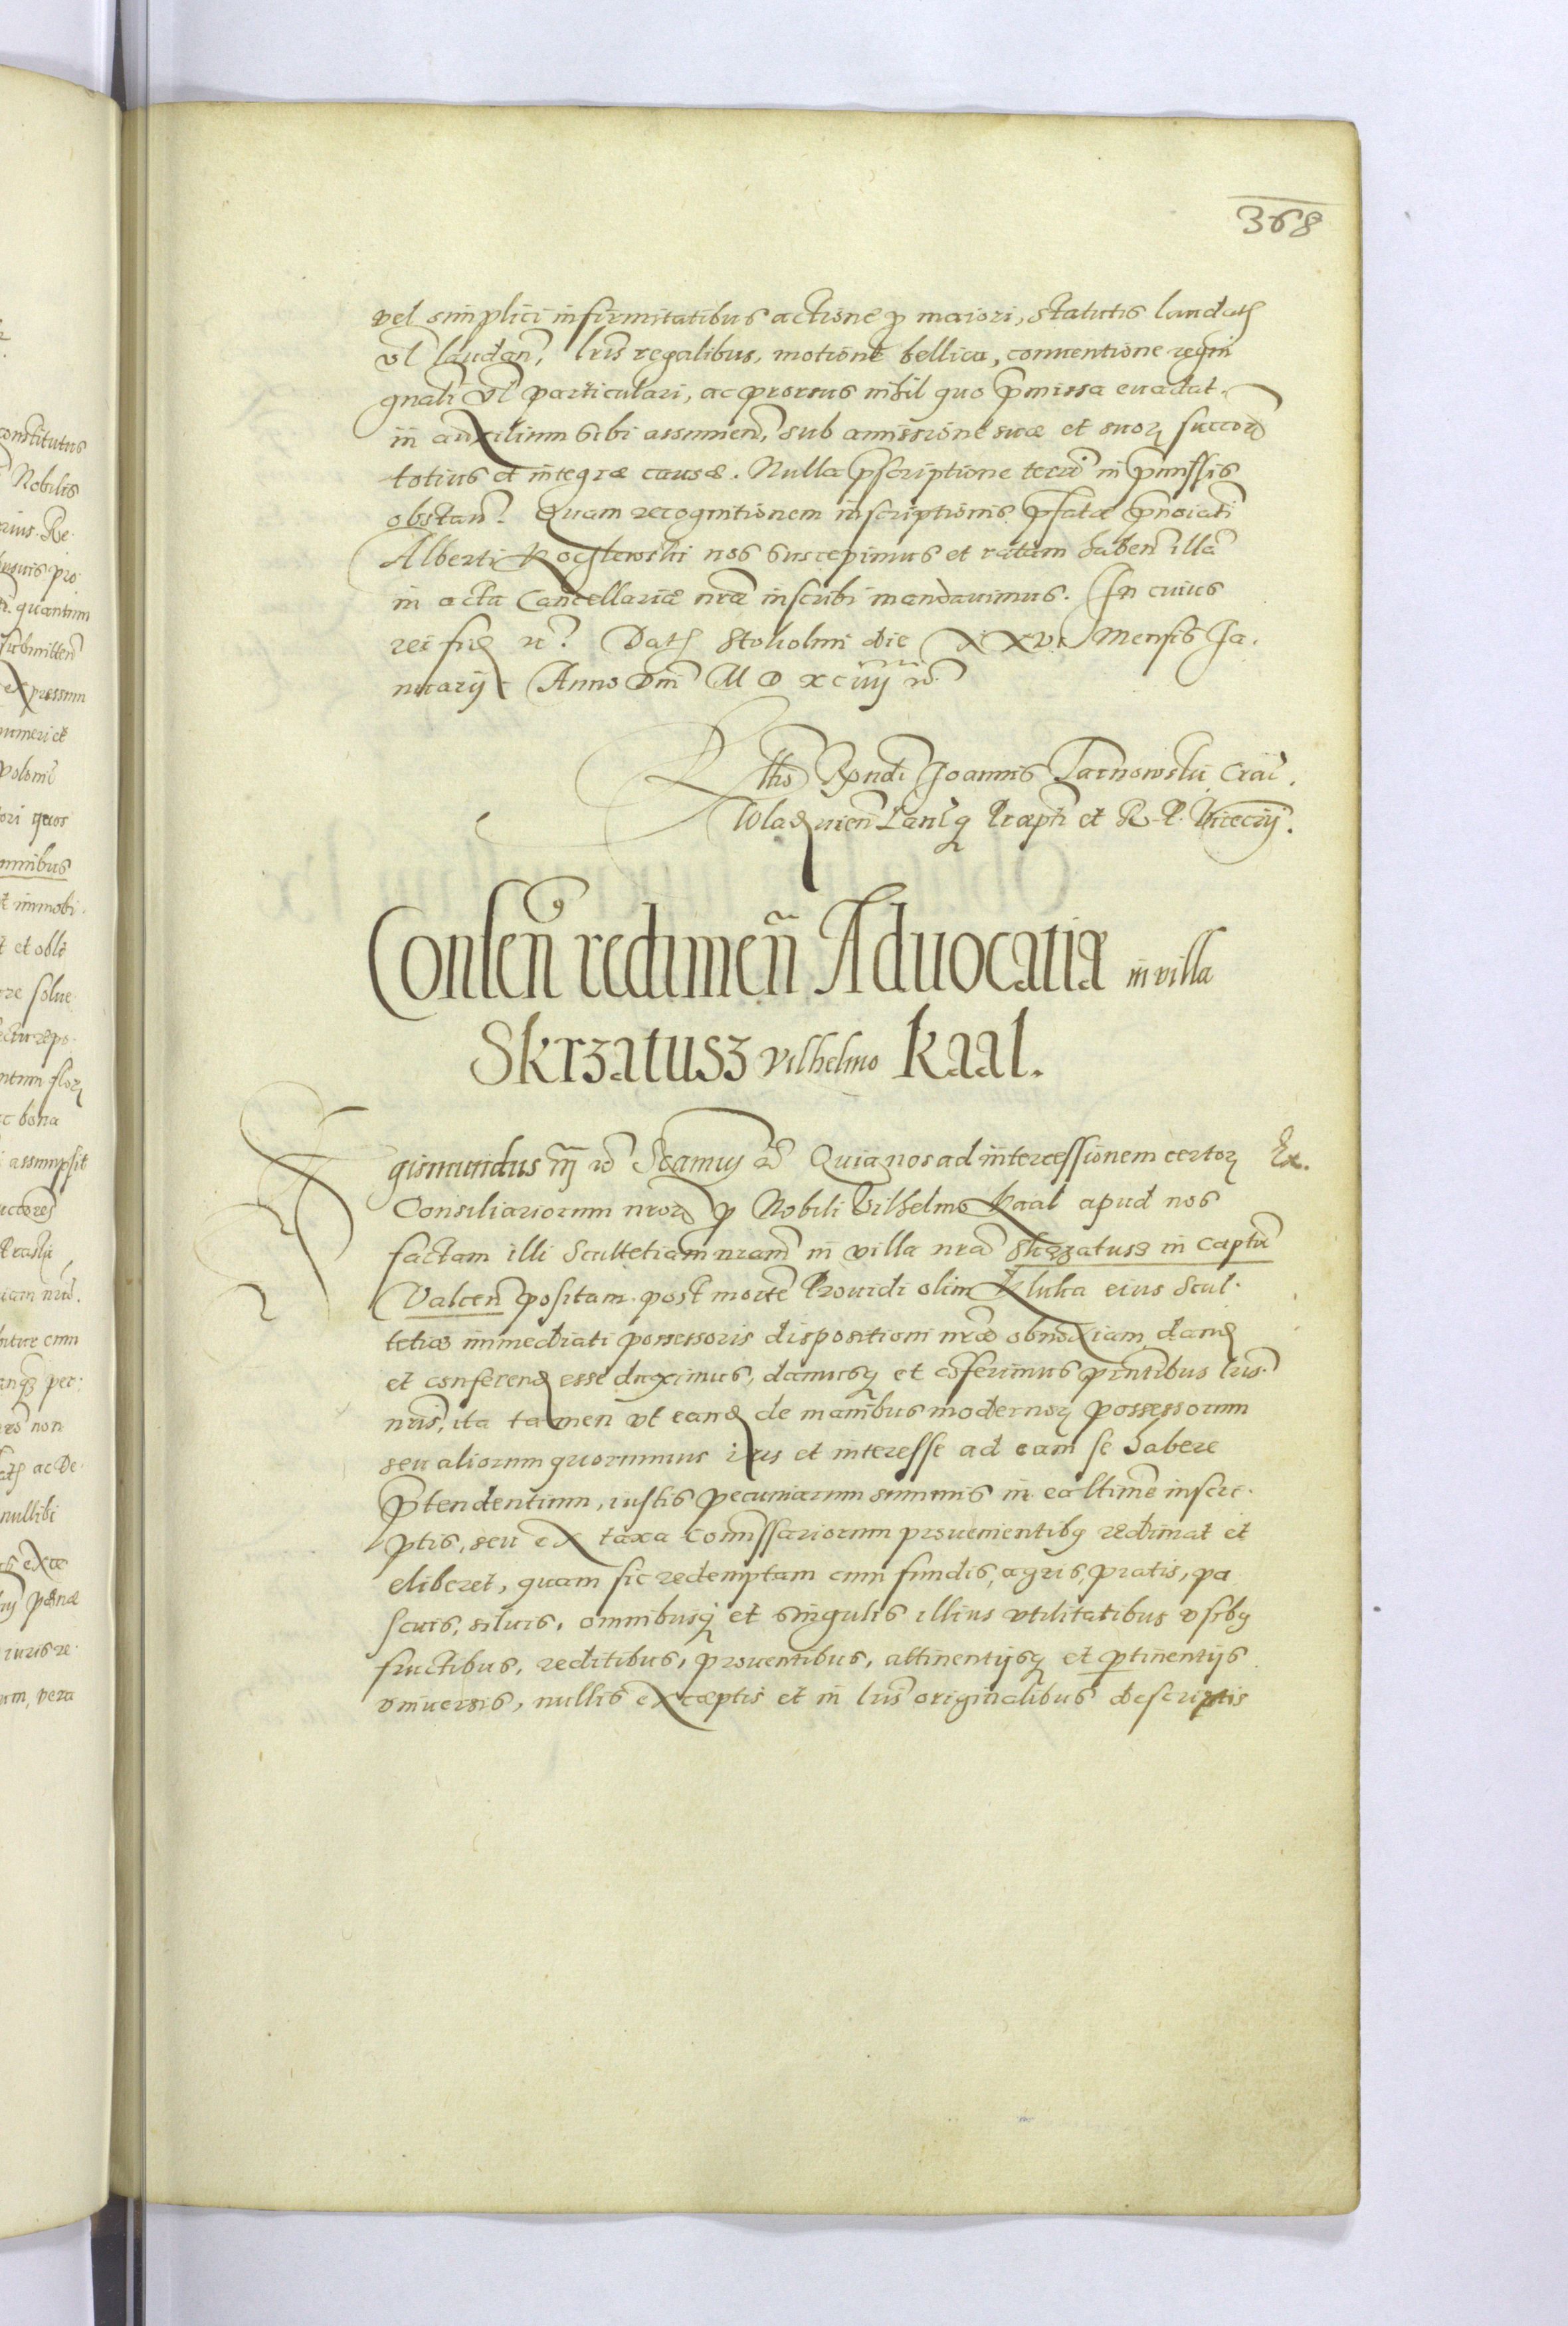 368
vel simplici infirmitatibus actione p maiori, statutis laudat
vl laudan, lris regalibus, motione bellica, conuentione regni
gnali vl particulari, ac prorsus nihil quo pmissa euadat
in auxilium sibi assumen, sub amissione suæ et suor succor
totius et integræ causæ. Nulla pscriptione terr in pmissis
obstan. Quam recognitionem inscriptionis pfatæ pnoiati
Alberti nos suscepimus et ratam haben illa
in acta Cancellariæ nræ inscribi mandauimus. In cuius
rei fid rc. Dat Stokolmi die XXVI Mensis Ja.
nuarij Anno Dni M D XCiiij rc
Rltio Rndi Joannis Tarnowski Crac.
Wladnien Lanciq Præpti et R. P. Vicecrij.
Consen redimen Aduocatiæ in villa
Skrzatusz Vilhelmo Kaal.
Sigismundus iij rc Scamus rc Quia nos ad intercessionem certor
Ex.
Consiliariorum nror p Nobili Vilhelmo Kaal apud nos
factam illi Scultetiam nram in villa nra Skrzatusz in captu
Valcen positam post morte Prouidi olim Kluka eius Scul.
tetiæ immediati possessoris dispositioni nræ obnoxiam dand
et conferend esse duximus, damusq et coferimus pntibus lris
nris, ita tamen vt eand de manibus modernor possessorum
seu aliorum quorumuis ius et interesse ad eam se habere
ptendentium, iustis pecuniarum summis in ea ltime inscri.
ptis, seu ex taxa comissariorum prouenientibq redimat et
eliberet, quam sic redemptam cum fundis, agris, pratis, pa
scuis, siluis, omnibusq et singulis illius vtilitatibus vsibq
fructibus, reditibus, prouentibus, attinentijsq et ptinentijs
vniuersis, nullis exceptis et in lris originalibus descriptis